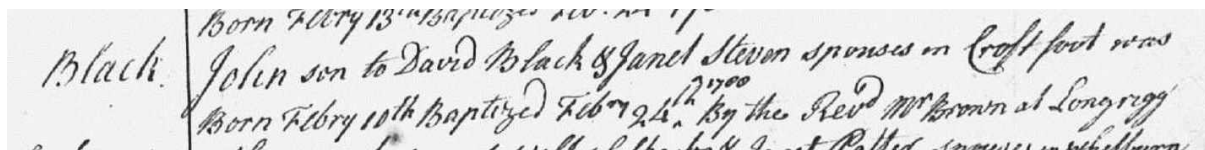 Born Febry 13th Baptized Feb. 24
Black. John son to David Black & Janet Steven spouses in Croft foot was
Born Febry 10th Baptized Febry 24th 1700 By the Revd Mr Brown at Longrigg